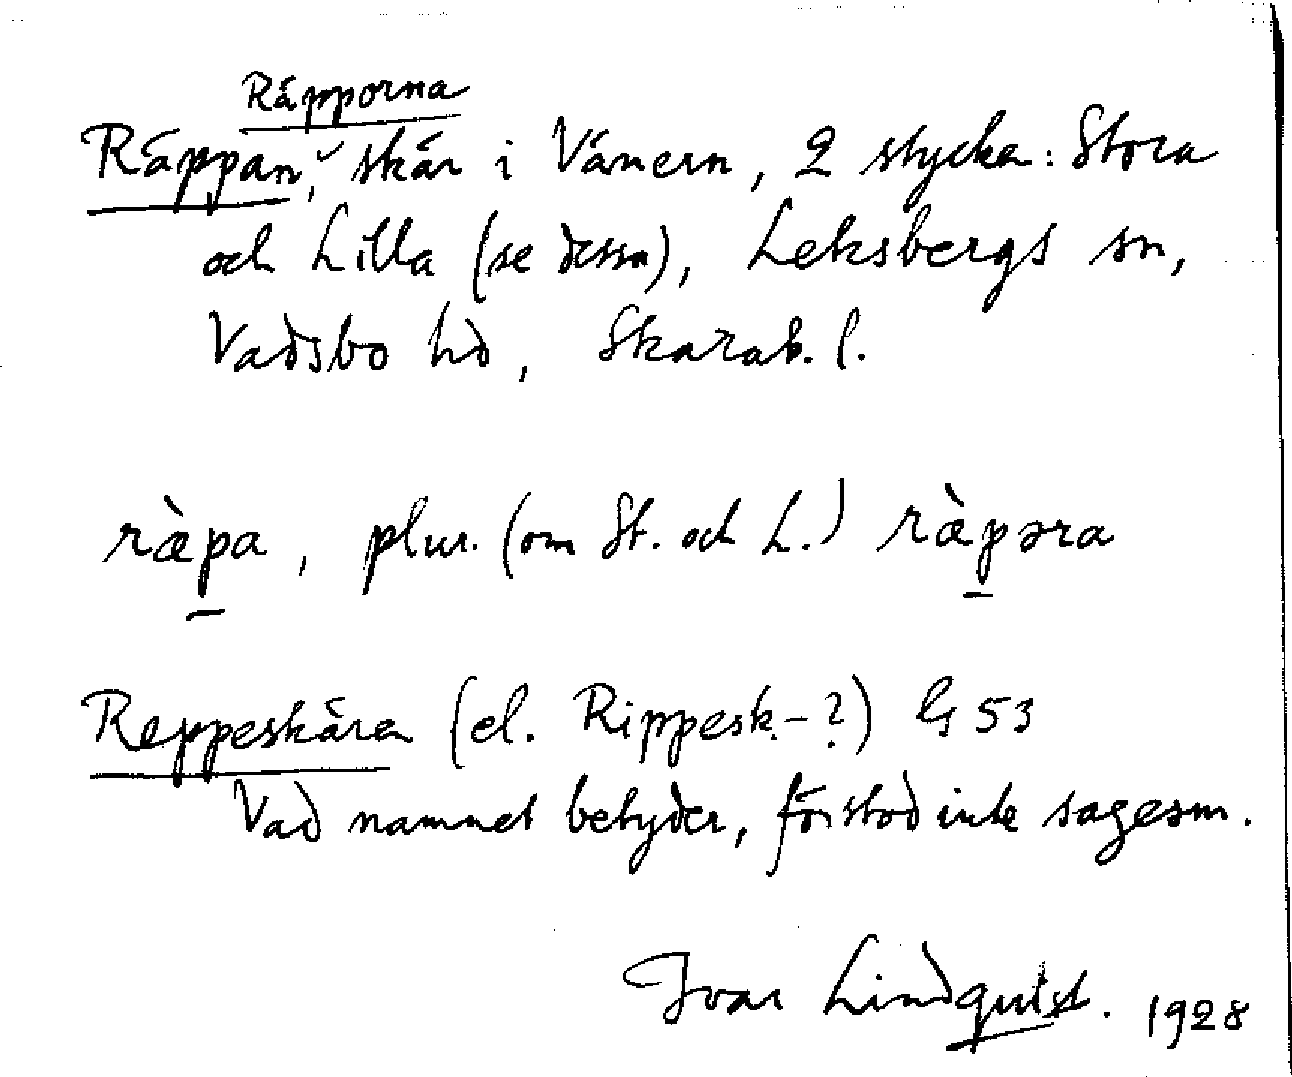 Räpporna
Räppan, skär i Vänern, 2 stycken: Stora
och Lilla (se dessa), Leksbergs sn,
Vadsbo hd, Skarab. l.
ræ̀pa, plur. (om St. och L.) ræ̀pəra
Reppeskären (el. Rippesk-?) G 53
Vad namnet betyder, förstod inte sagesm.
Ivar Lindquist. 1928